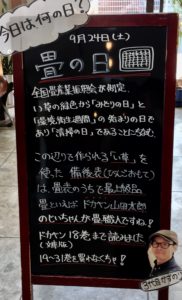 今日は何の日?
9月24日(土)
畳の日
全国畳産業振興会が制定。
い草の緑色から「みどりの日」と
「環境衛生週間」の始まりの日で
あり「清掃の日」であることにちなむ。
この辺りで作られる「い草」を
使った 備後表(びんごおもて)
は、畳表のうちで最上級品
畳といえば ドカベン 山田太郎
のじいちゃんが畳職人ですね!
ドカベン 18巻まで読みました
19〜31巻を買わなくちゃ!